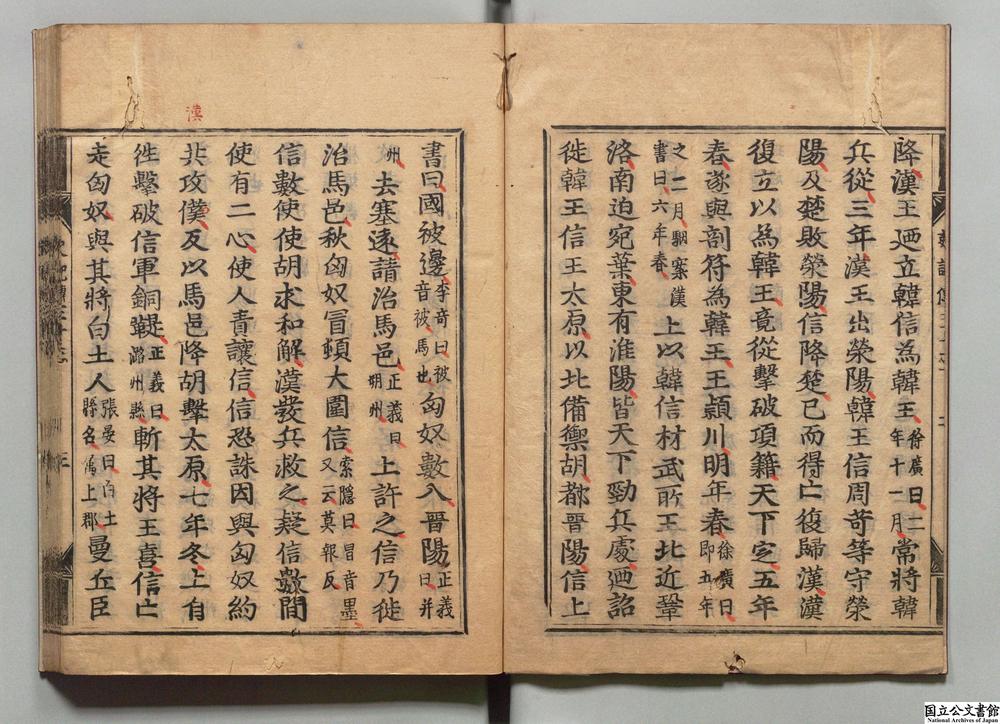 降漢王廼立韓信為韓王徐廣曰二年十一月常將韓
兵從三年漢王出滎陽韓王信周苛等守滎
陽及楚敗滎陽信降楚已而得亡復歸漢漢
復立以為韓王竟從擊破項籍天下定五年
春遂與剖符為韓王王潁川明年春徐廣曰即五年
之二月駰案漢書曰六年春上以韓信材武所王北近鞏
洛南迫宛葉東有淮陽皆天下勁兵處廼詔
徙韓王信王太原以北備禦胡都晋陽信上
書曰國被邊李竒曰被音被馬也匈奴數入晋陽正義曰并
州去塞遠請治馬邑正義曰朔州上許之信乃徙
治馬邑秋匈奴冒頓大圍信索隱曰冒音墨又云莫報反
信數使使胡求和解漢發兵救之疑信數間
使有二心使人責讓信信恐誅因與匈奴約
共攻漢反以馬邑降胡擊太原七年冬上自
徃擊破信軍銅鞮正義曰潞州縣斬其將王喜信亡
走匈奴與其將白土人張晏曰白土縣名屬上郡曼丘臣
漢
国立公文書館
National Archives of Japan